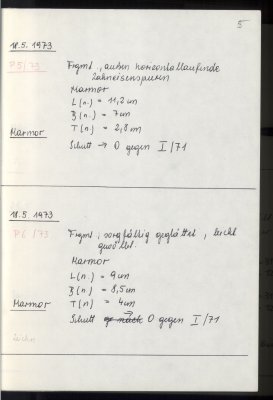 5
18.5.1973
P.5/73 Fragmt., außen horizontallaufende
Zahneisenspuren
Marmor
L(n.) = 11,2 cm
B(n.) = 7 cm
Marmor T(n.) = 2,8 cm
Schutt → O gegen I/71
18.5.1973
P.6/73 Fragmt., sorgfältig geglättet, leicht
Marmor
L(n.) = 9 cm
B(n.) = 8,5 cm
Marmor T(n) = 4 cm
Schutt → O gegen I/71
Zeichn.